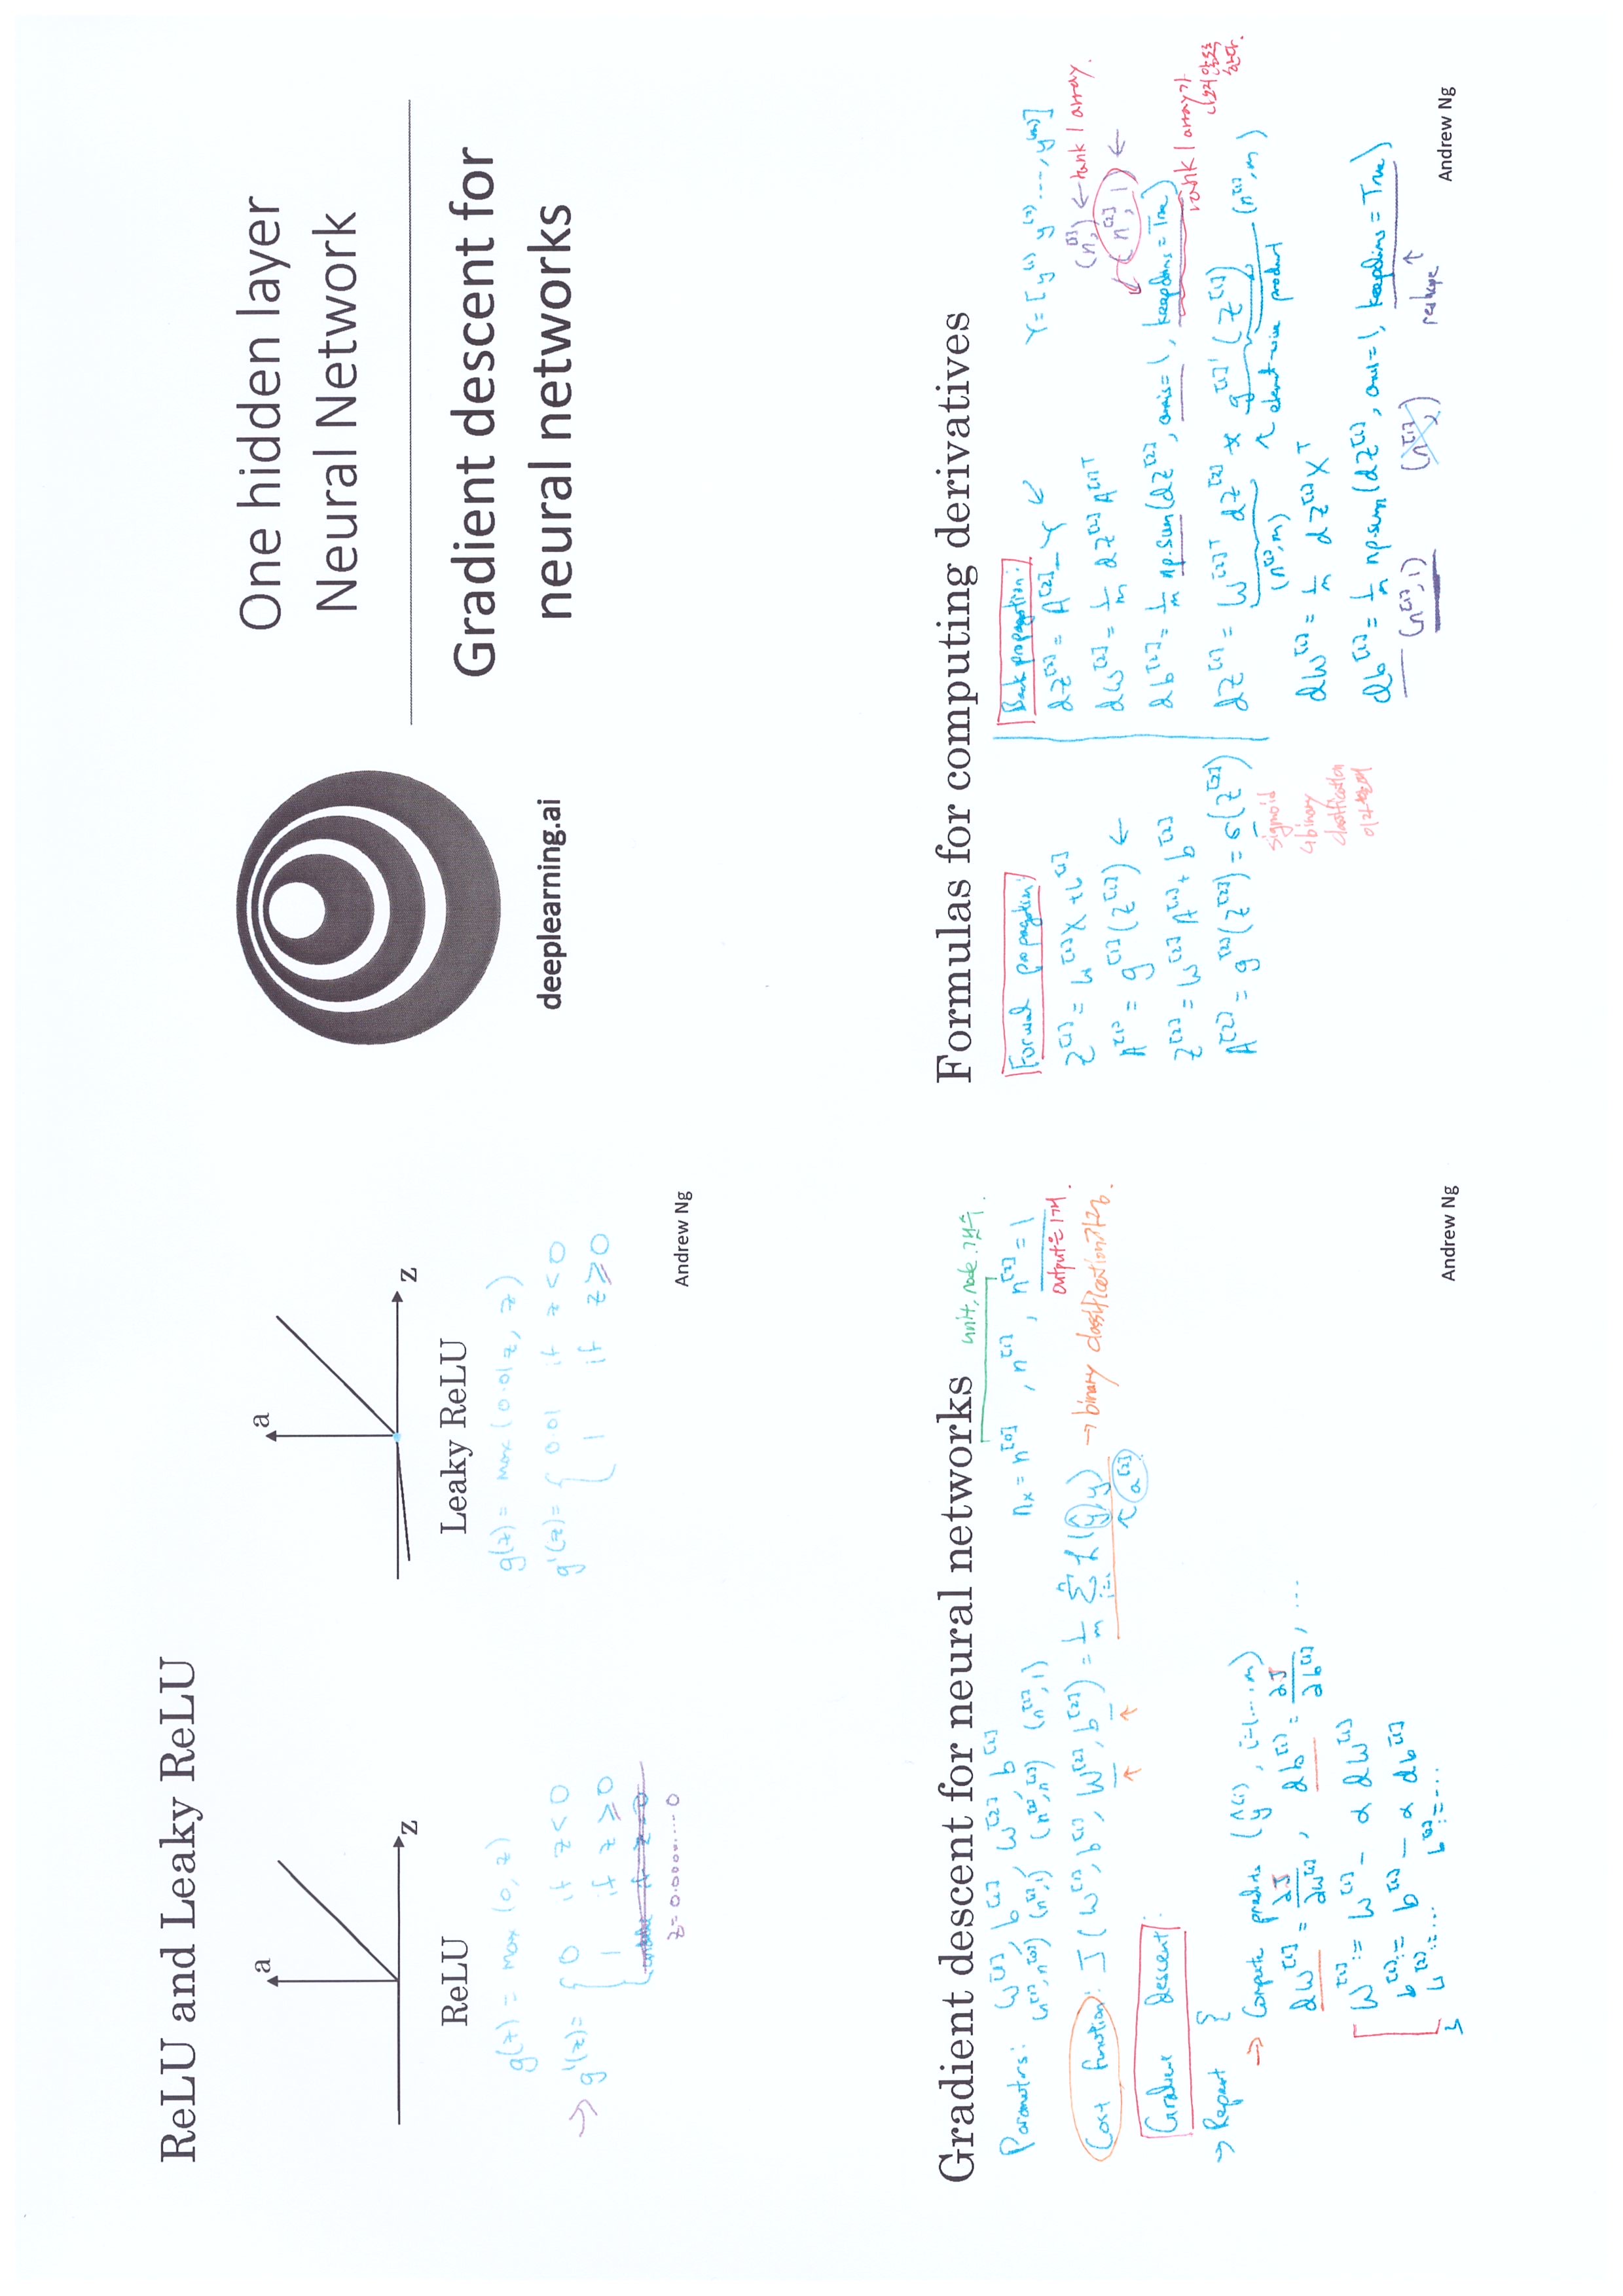 ReLU and Leaky ReLU
a
z
ReLU
g(z) = max (0, z)
→ g'(z) = { 0 if z < 0
1 if z ≥ 0
if z = 0
z = 0.0000.....0
a
z
Leaky ReLU
g(z) = max (0.01z, z)
g'(z) = { 0.01 if z < 0
1 if z ≥ 0
Andrew Ng
deeplearning.ai
One hidden layer
Neural Network
Gradient descent for
neural networks
Gradient descent for neural networks
unit, node 개수.
Parameters: W^[1], b^[1], W^[2], b^[2]
(n^[1], n^[0]) (n^[1], 1) (n^[2], n^[1]) (n^[2], 1)
n_x = n^[0], n^[1], n^[2] = 1
output은 1개.
Cost function: J(W^[1], b^[1], W^[2], b^[2]) = 1/m Σ_{i=1}^n L(ŷ, y) → binary classification
↑ ↑ ↑ a^[2]
Gradient descent:
→ Repeat {
→ Compute predicts (ŷ^(i), i=1...,m)
dW^[1] = ∂J/∂W^[1], db^[1] = ∂J/∂b^[1], ...
W^[1] := W^[1] - α dW^[1]
b^[1] := b^[1] - α db^[1]
W^[2] := ... b^[2] := ...
}
Andrew Ng
Formulas for computing derivatives
Forwal propagation:
Z^[1] = W^[1]X + b^[1]
A^[1] = g^[1](Z^[1]) ←
Z^[2] = W^[2]A^[1] + b^[2]
A^[2] = g^[2](Z^[2]) = σ(Z^[2])
sigmoid
↳ binary
classification
Back propagation:
dZ^[2] = A^[2] - Y ↙
Y = [y^(1) y^(2) ..., y^(m)]
dW^[2] = 1/m dZ^[2] A^[1]T
(n^[2],) ← rank 1 array.
(n^[2], 1) ←
db^[2] = 1/m np.sum(dZ^[2], axis=1, keepdims=True)
rank 1 array가
나오지 않도록
한다.
dZ^[1] = W^[2]T dZ^[2] * g^[1]'(Z^[1])
(n^[1], m) ↑ element-wise product (n^[1], m)
dW^[1] = 1/m dZ^[1] X^T
db^[1] = 1/m np.sum(dZ^[1], axis=1, keepdims=True)
(n^[1], 1) (n^[1],) reshape ↑
Andrew Ng